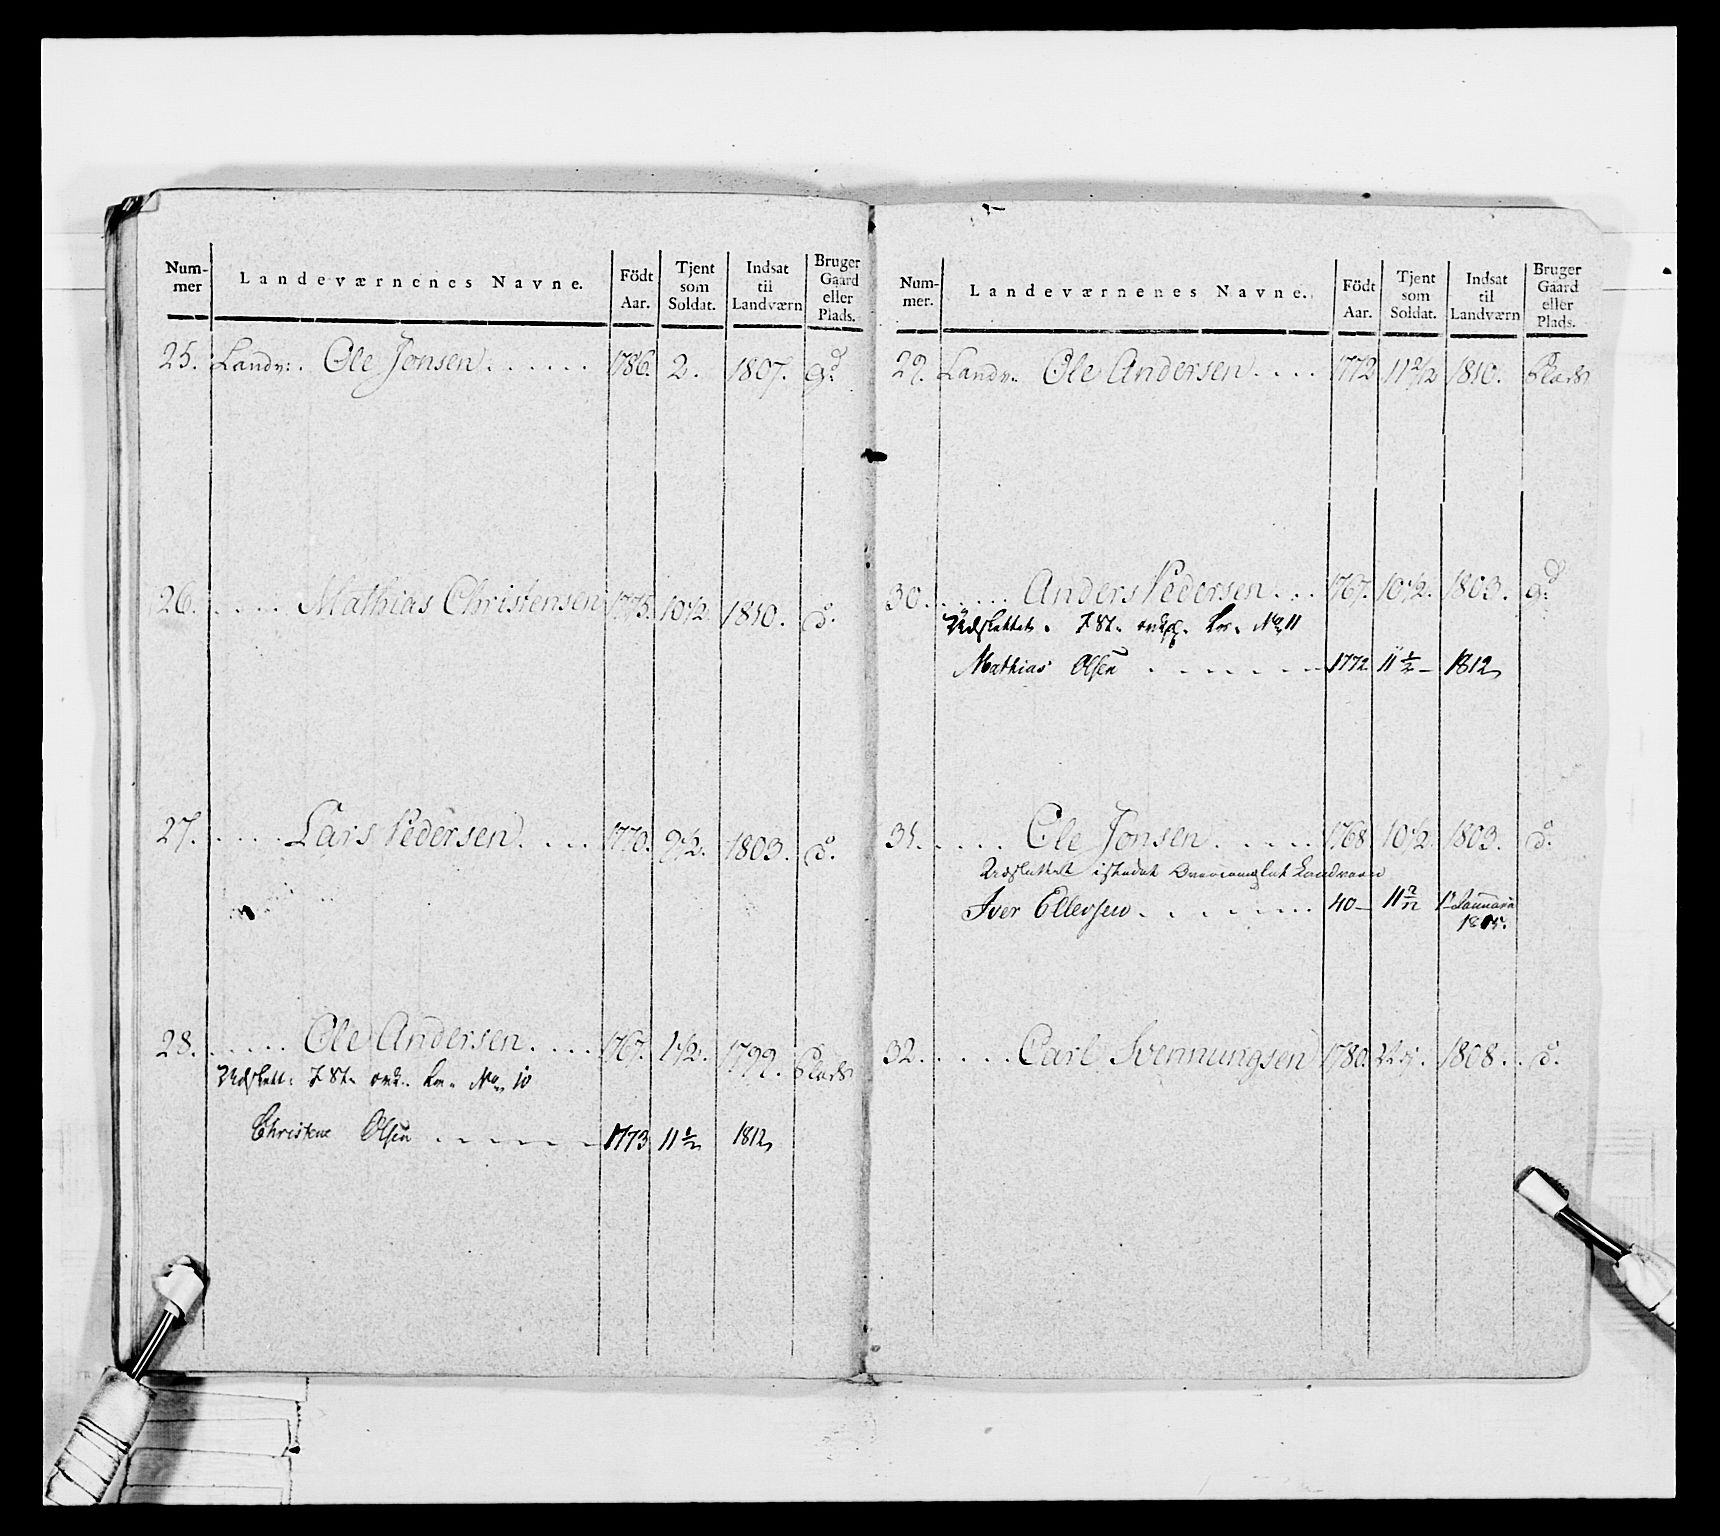 Num-mer Landeværnenes Navne. Födt Aar. Tjent som Soldat. Indsat til Landværn Bruger Gaard eller Plads.
25. Landv: Ole Jonsen 1786. 2. 1807. Gd
26. Mathias Christensen 1775. 10 1/2. 1810. do.
27. Lars Pedersen 1770. 9 1/2. 1803. do.
28. Ole Andersen 1767. 1 1/2. 1799. Plads
Udslett: No 10
Christen Olsen 1773 11 1/2 1812
Num-mer. Landeværnenes Navne. Födt Aar. Tjent som Soldat. Indsat til Landværn Bruger Gaard eller Plads.
29. Landv: Ole Andersen 1772 11 2/12 1810. Plads
30. Anders Pedersen 1767. 10 1/2. 1803. Gd
Udslettet. No 11
Mathias Olsen 1772 11 1/2 1812
31. Ole Jonsen 1768 10 1/2 1803. do.
Udslettet istedet Overcomplet Landværn
Iver Ellevsen 40 11 2/12 1te Januari
32. Carl Svennungsen 1780. 1808. do.